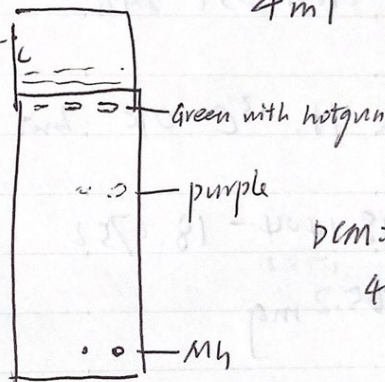 4 ml
Green with hotgun
purple
DCM=
4
Mh